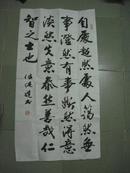 自處超然處人藹然無
事澄然有事斬然得意
淡然失意泰然善哉仁
智之士也